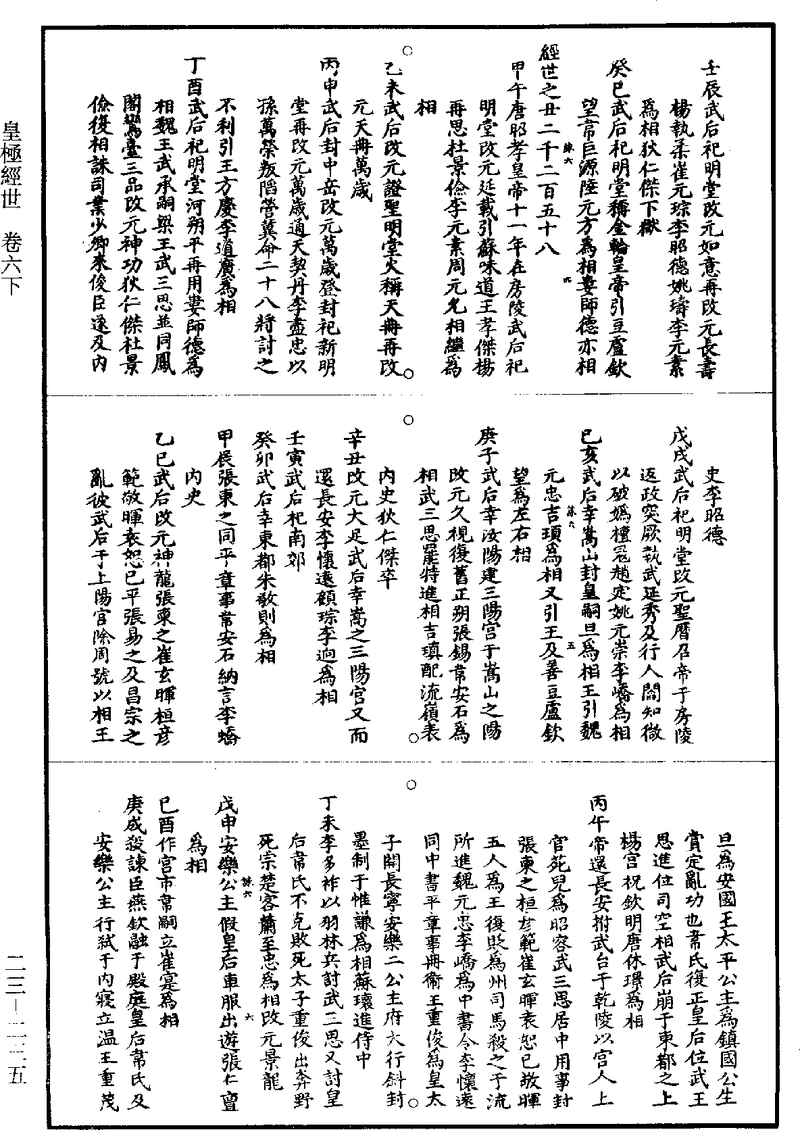 壬辰武后祀明堂改元如意再改元長壽
楊執柔崔元琮李昭德姚璹李元素
為相狄仁傑下獄
癸巳武后祀明堂稱金輪皇帝引豆盧欽
望韋巨源陸元方為相婁師德亦相
經世之丑二千二百五十八
甲午唐昭孝皇帝十一年在房陵武后祀
明堂改元延載引蘇味道王孝傑楊
再思杜景儉李元素周元允相繼為
相
乙未武后改元證聖明堂火稱天冊再改
元天冊萬歲
丙申武后封中岳改元萬歲登封祀新明
堂再改元萬歲通天契丹李盡忠以
孫萬榮叛陷營冀命二十八將討之
不利引王方慶李道廣為相
丁酉武后祀明堂河朔平再用婁師德為
相魏王武承嗣梁王武三思並同鳳
閣鸞臺三品改元神功狄仁傑杜景
儉復相誅司業少卿來俊臣逸及內
史李昭德
戊戌武后祀明堂改元聖曆召帝于房陵
返政突厥執武延秀及行人閻知微
以破媯檀冦趙定姚元崇李嶠為相
己亥武后幸嵩山封皇嗣旦為相王引魏
元忠吉頊為相又引王及善豆盧欽
望為左右相
庚子武后幸汝陽建三陽宮于嵩山之陽
改元久視復舊正朔張錫韋安石為
相武三思罷特進相吉頊配流嶺表
內史狄仁傑卒
辛丑改元大足武后幸嵩之三陽宮又而
還長安李懷遠顧琮李迥為相
壬寅武后祀南郊
癸卯武后幸東都朱敬則為相
甲辰張柬之同平章事韋安石納言李嶠
內史
乙巳武后改元神龍張柬之崔玄暐桓彥
範敬暉袁恕己平張易之及昌宗之
亂彼武后于上陽宮除周號以相王
旦為安國王太平公主為鎮國公主
賞定亂功也韋氏復正皇后位武王
思進位司空相武后崩于東都之上
楊宮祝欽明唐休璟為相
丙午帝還長安祔武台于乾陵以宮人上
官苑兒為昭容武三思居中用事封
張柬之桓彥範崔玄暐袁恕己敬暉
五人為王復貶為州司馬殺之于流
所進魏元忠李嶠為中書令李懷遠
同中書平章事冊衛王重俊為皇太
子開長寧安樂二公主府大行斜封
墨制于惟謙為相蘇瓌進侍中
丁未李多祚以羽林兵討武三思又討皇
后韋氏不克敗死太子重俊出奔野
死宗楚客蕭至忠為相改元景龍
戊申安樂公主假皇后車服出遊張仁亶
為相
己酉作宮市韋嗣立崔寔為相
庚戌殺諫臣燕欽融于殿庭皇后韋氏及
安樂公主行弒于內寢立溫王重茂
皇極經世 卷六下
二三—二二五